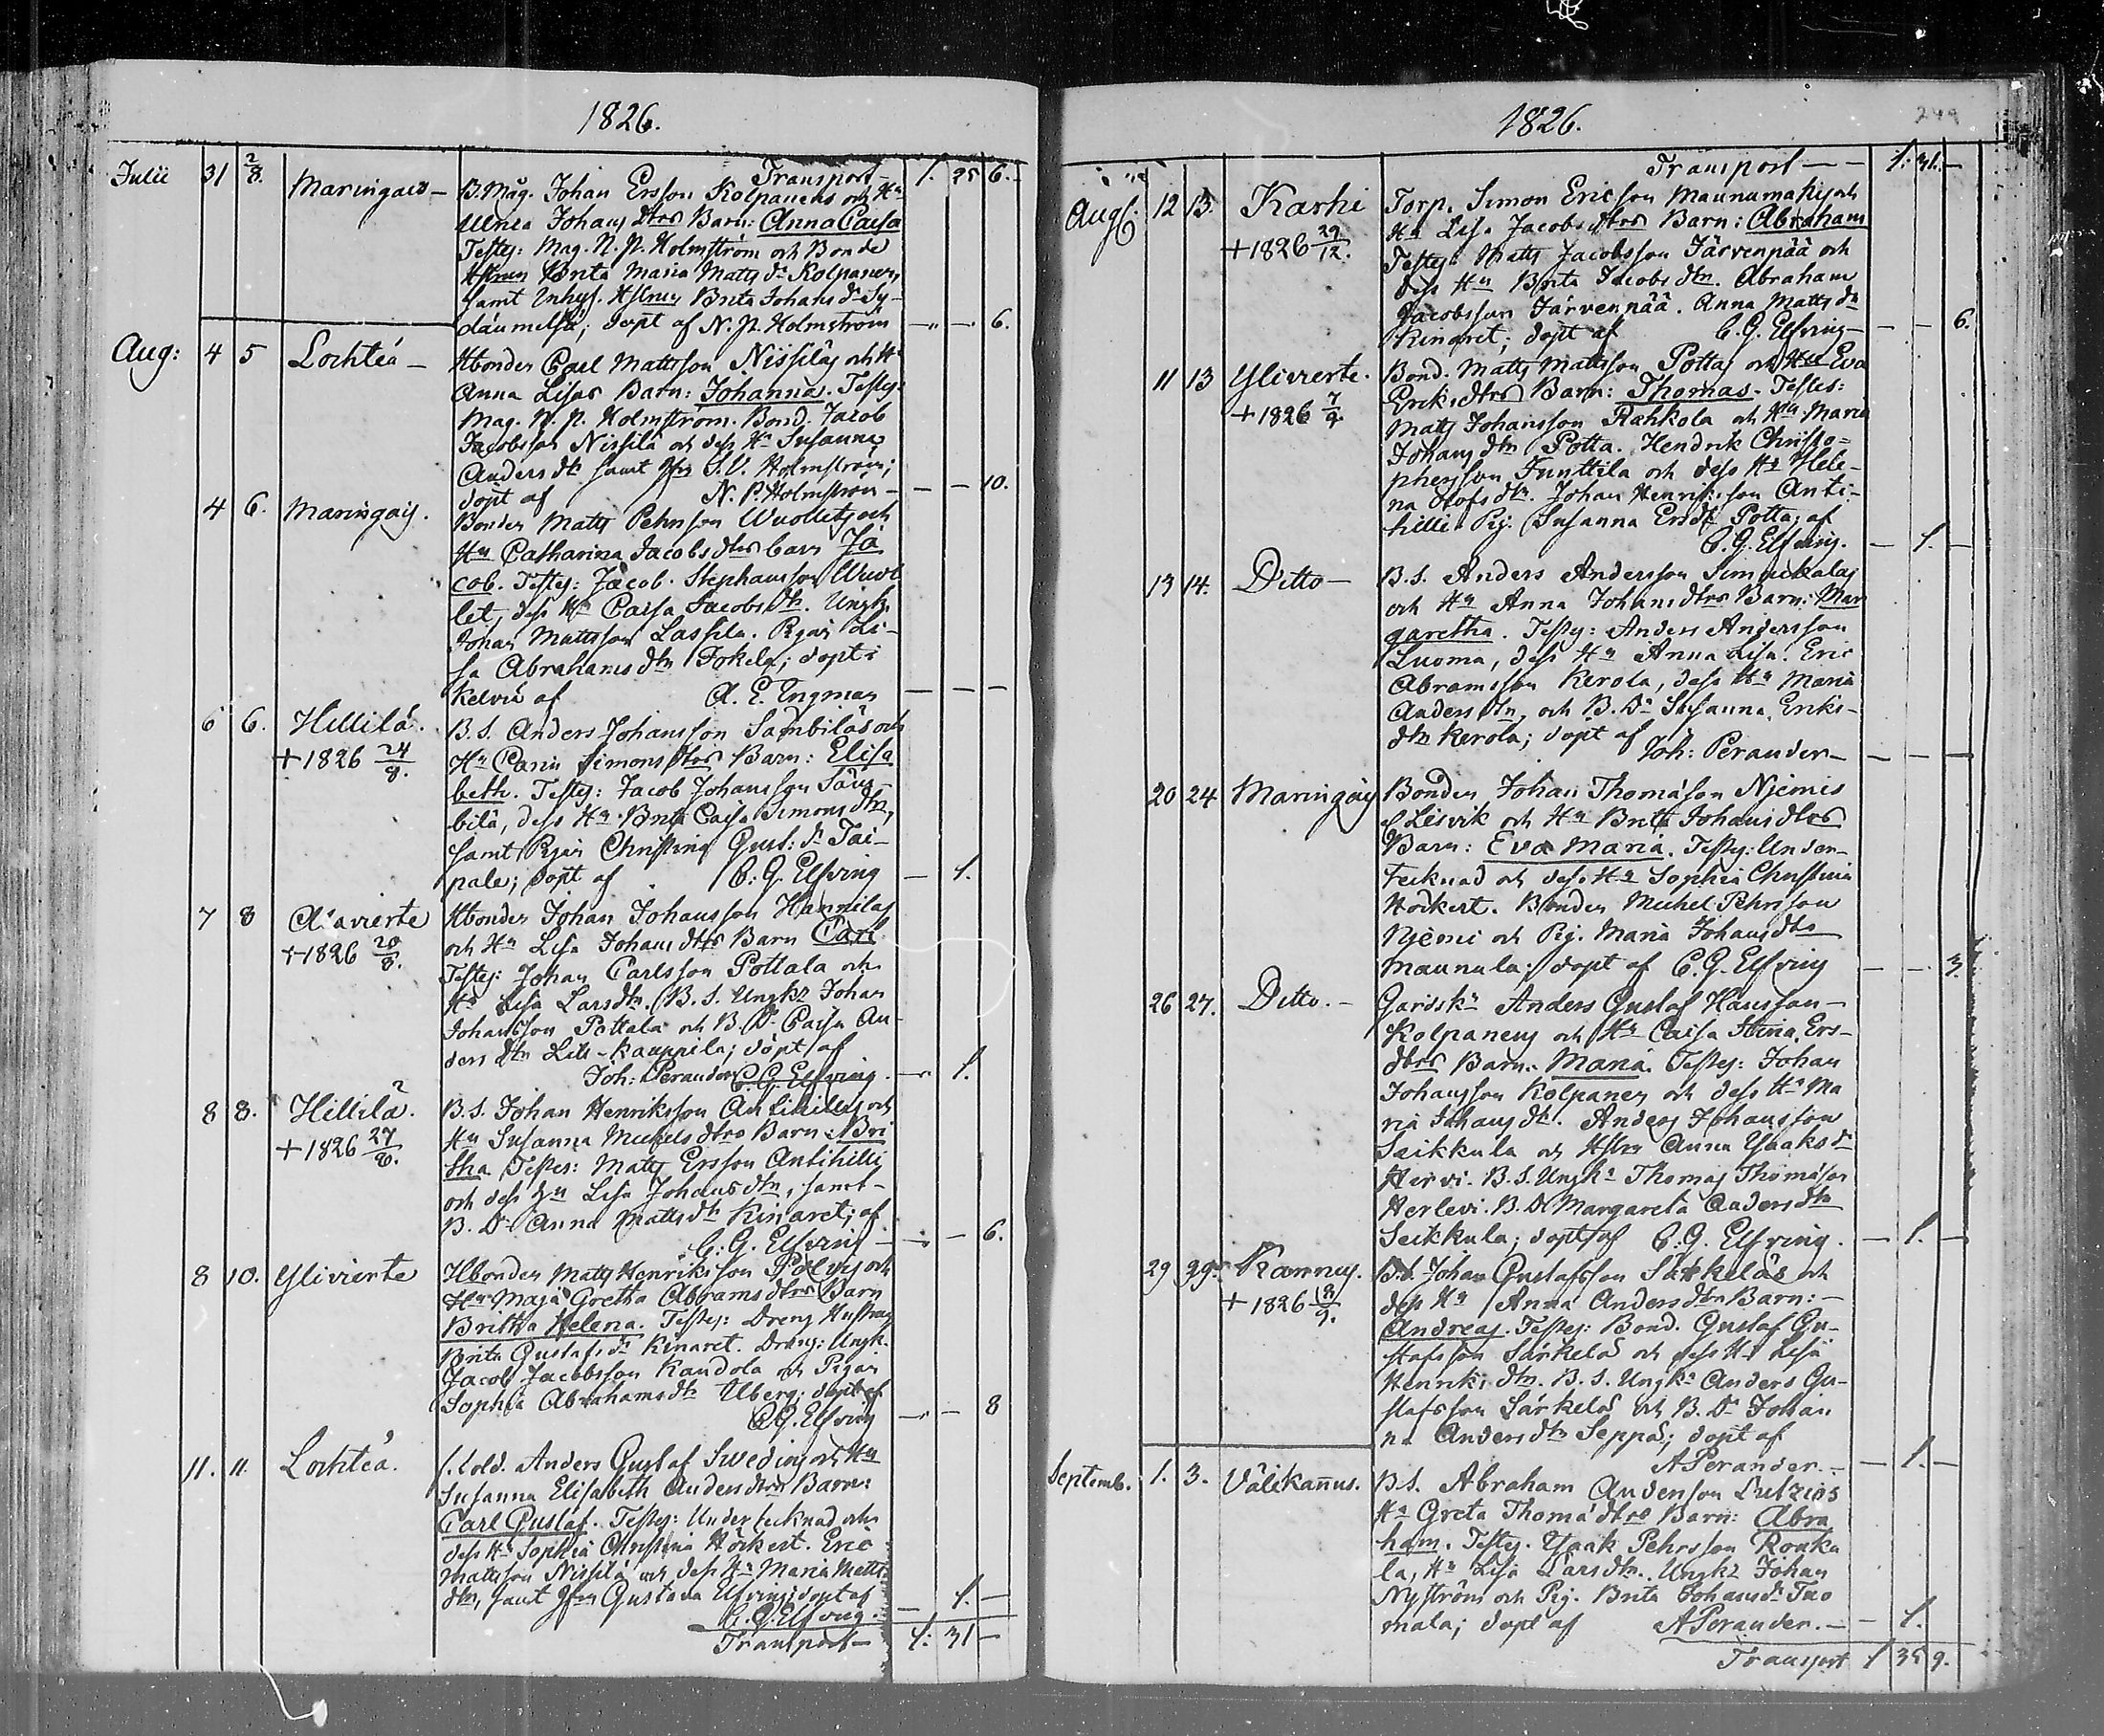 1826.
Transport — 1. 25 6.
Julii 31 2/8. Maringais — B. Måg. Johan Ersson Kolpanens och Hu
Ulrica Johans dtrs Barn: Anna Caisa
Testes: Mag. N. P. Holmström och Bonde
Hstrun Brita Maria Matts dr Kolpanen,
samt Inhys. Hstrun Brita Johans dr Sy-
däumetsä; döpt af N. P. Holmström — — 6.
Aug: 4 5 Lochteå — Åbonden Carl Mattsson Nissiläs och Hu
Anna Lisas Barn: Johanna. Testes:
Mag. N. P. Holmström. Bond. Jacob
Jacobsson Nissilä och dess Hu Susanna
Anders dtr samt Jfru S. U. Holmström;
döpt af N. P. Holmström — — — 10.
4 6. Maringais. Bonden Matts Pehrsson Wuollets och
Hu Catharina Jacobs dtrs barn Ja
cob. Testes: Jacob Stephansson Wuol
let, dess Hu Caisa Jacobs dtr. Ungk.
Johan Mattsson Lassila. Pigan Li-
sa Abrahams dtr Jokela; döpt i
Kelviå af A. E. Engman — — —
6 6. Hillilä. B. S. Anders Johansson Sambiläs och
+ 1826 24/8. Hu Carin Simons dtrs Barn: Elisa
beth. Testes: Jacob Johansson Säm-
bilä, dess Hu Brita Caisa Simons dtr,
samt Pigan Christina Gust: dr Tai-
pale; döpt af C. G. Elfving — 1.
7 8 Alavierte Åbonden Johan Johansson Hannilas
+ 1826 20/8. och Hu Lisa Johans dtrs Barn Carl
Testes: Johan Carlsson Pottala och
Hu Lisa Larsdtr. B. S. Ungkr Johan
Johansson Pottala och B. Dr Caisa An-
ders dtr Lill-Kauppila; döpt af
Joh: Perander C. G. Elfving. — 1.
8 8. Hillilä. B. S. Johan Henriksson Antihillis och
+ 1826 27/8. Hu Susanna Michels dtrs Barn: Bri
tha Testes: Matts Ersson Antihilli
och dess Hu Lisa Johans dtr, samt
B. Dr Anna Matts dtr Kinaret; af
C. G. Elfving — — 6.
8 10. Ylivierte Åbonden Matts Henriksson Pölvis och
Hu Maja Gretha Abrams dtrs Barn
Britha Helena. Testes: Dreng Hustrun
Brita Gustafs dr Kinaret. Dräng: Ungk.
Jacob Jacobsson Kandola och Pigan
Sophia Abrahams dtr Ulberg; döpt af
C. G. Elfving — — 8
11. 11. Lochteå. f. Sold. Anders Gustaf Swedins och Hu
Susanna Elisabeth Anders dtrs Barn:
Carl Gustaf. Testes: Undertecknad och
dess Hu Sophia Christina Höckert. Eric
Mattsson Nissilä och dess Hu Maria Matts
dtr, samt Jfru Gustava Elfving; döpt af
C. G. Elfving. — 1. —
Transport — 1: 31 —
1826. 249
Transport — — 1: 31. —
Aug. 12 13. Karhi Torp. Simon Ericsson Maunumäkis och
+ 1826 29/12. Hu Lisa Jacobs dtrs Barn: Abraham
Testes: Matts Jacobsson Järvenpää och
dess Hu Brita Jacobs dtr. Abraham
Jacobsson Järvenpää. Anna Matts dtr
Kinaret; döpt af C. G. Elfving — — — 6.
11 13 Ylivierte. Bond. Matts Mattsson Pottas och Hu Eva
+ 1826 7/9. Eriks dtrs Barn: Thomas. Testes:
Matts Johansson Rahkola och Hu Maria
Johans dtr Potta. Hendrik Christo=
phersson Junttila och dess Hu Hele-
na Olofs dtr. Johan Henriksson Anti-
hilli. Pig. Susanna Ersdtr Potta; af
C. G. Elfving. — 1. —
13 14. Ditto — B. S. Anders Andersson Simukalas
och Hu Anna Johans dtrs Barn: Mar
garetha. Testes: Anders Andersson
Luoma, dess Hu Anna Lisa. Eric
Abramsson Kerola, dess Hu Maria
Anders dtr, och B. Dr Susanna Eriks-
dtr Kerola; döpt af
Joh: Perander — — — —
20 24 Maringais Bonden Johan Thomasson Njemis
Lisvik och Hu Brita Johans dtrs
Barn: Eva Maria. Testes: Under-
tecknad och dess Hu Sophia Christina
Höckert. Bonden Michel Pehrsson
Njemi och Pig. Maria Johans dtr
Maunula; döpt af C. G. Elfving — — 3.
26 27. Ditto. — Gardskr Anders Gustaf Hansson
Kolpanens och Hu Caisa Stina Ers-
dtrs Barn: Maria. Testes: Johan
Johansson Kolpanen och dess Hu Ma
ria Johans dtr. Anders Johansson
Seikkula och Hstru Anna Ysaks dr
Hervi. B. S. Ungkr Thomas Thomasson
Herlevi. B. D. Margareta Anders dtr
Seikkula; döpt af C. G. Elfving. — 1. —
29 29. Kannus. B. S. Johan Gustafsson Särkelås och
+ 1826 18/9. dess Hu Anna Anders dtrs Barn: —
Andreas. Testes: Bond. Gustaf Gu-
stafsson Särkelå och dess Hu Lisa
Henriks dtr. B. S. Ungkr Anders Gu-
stafsson Särkelå och B. Dr Johan
na Anders dtr Seppå; döpt af
A Perander. — — 1. —
Septemb. 1. 3. Välikannus. B. S. Abraham Andersson
Hu Greta Thomä dtrs Barn: Abra
ham. Testes. Ysaak Pehrsson Ronka
la, Hu Lisa Lars dtr. Ungkr Johan
Nyström och Pig. Brita Johans dr Tuo
mala; döpt af A Perander. — — 1.
Transport 1 35 9.